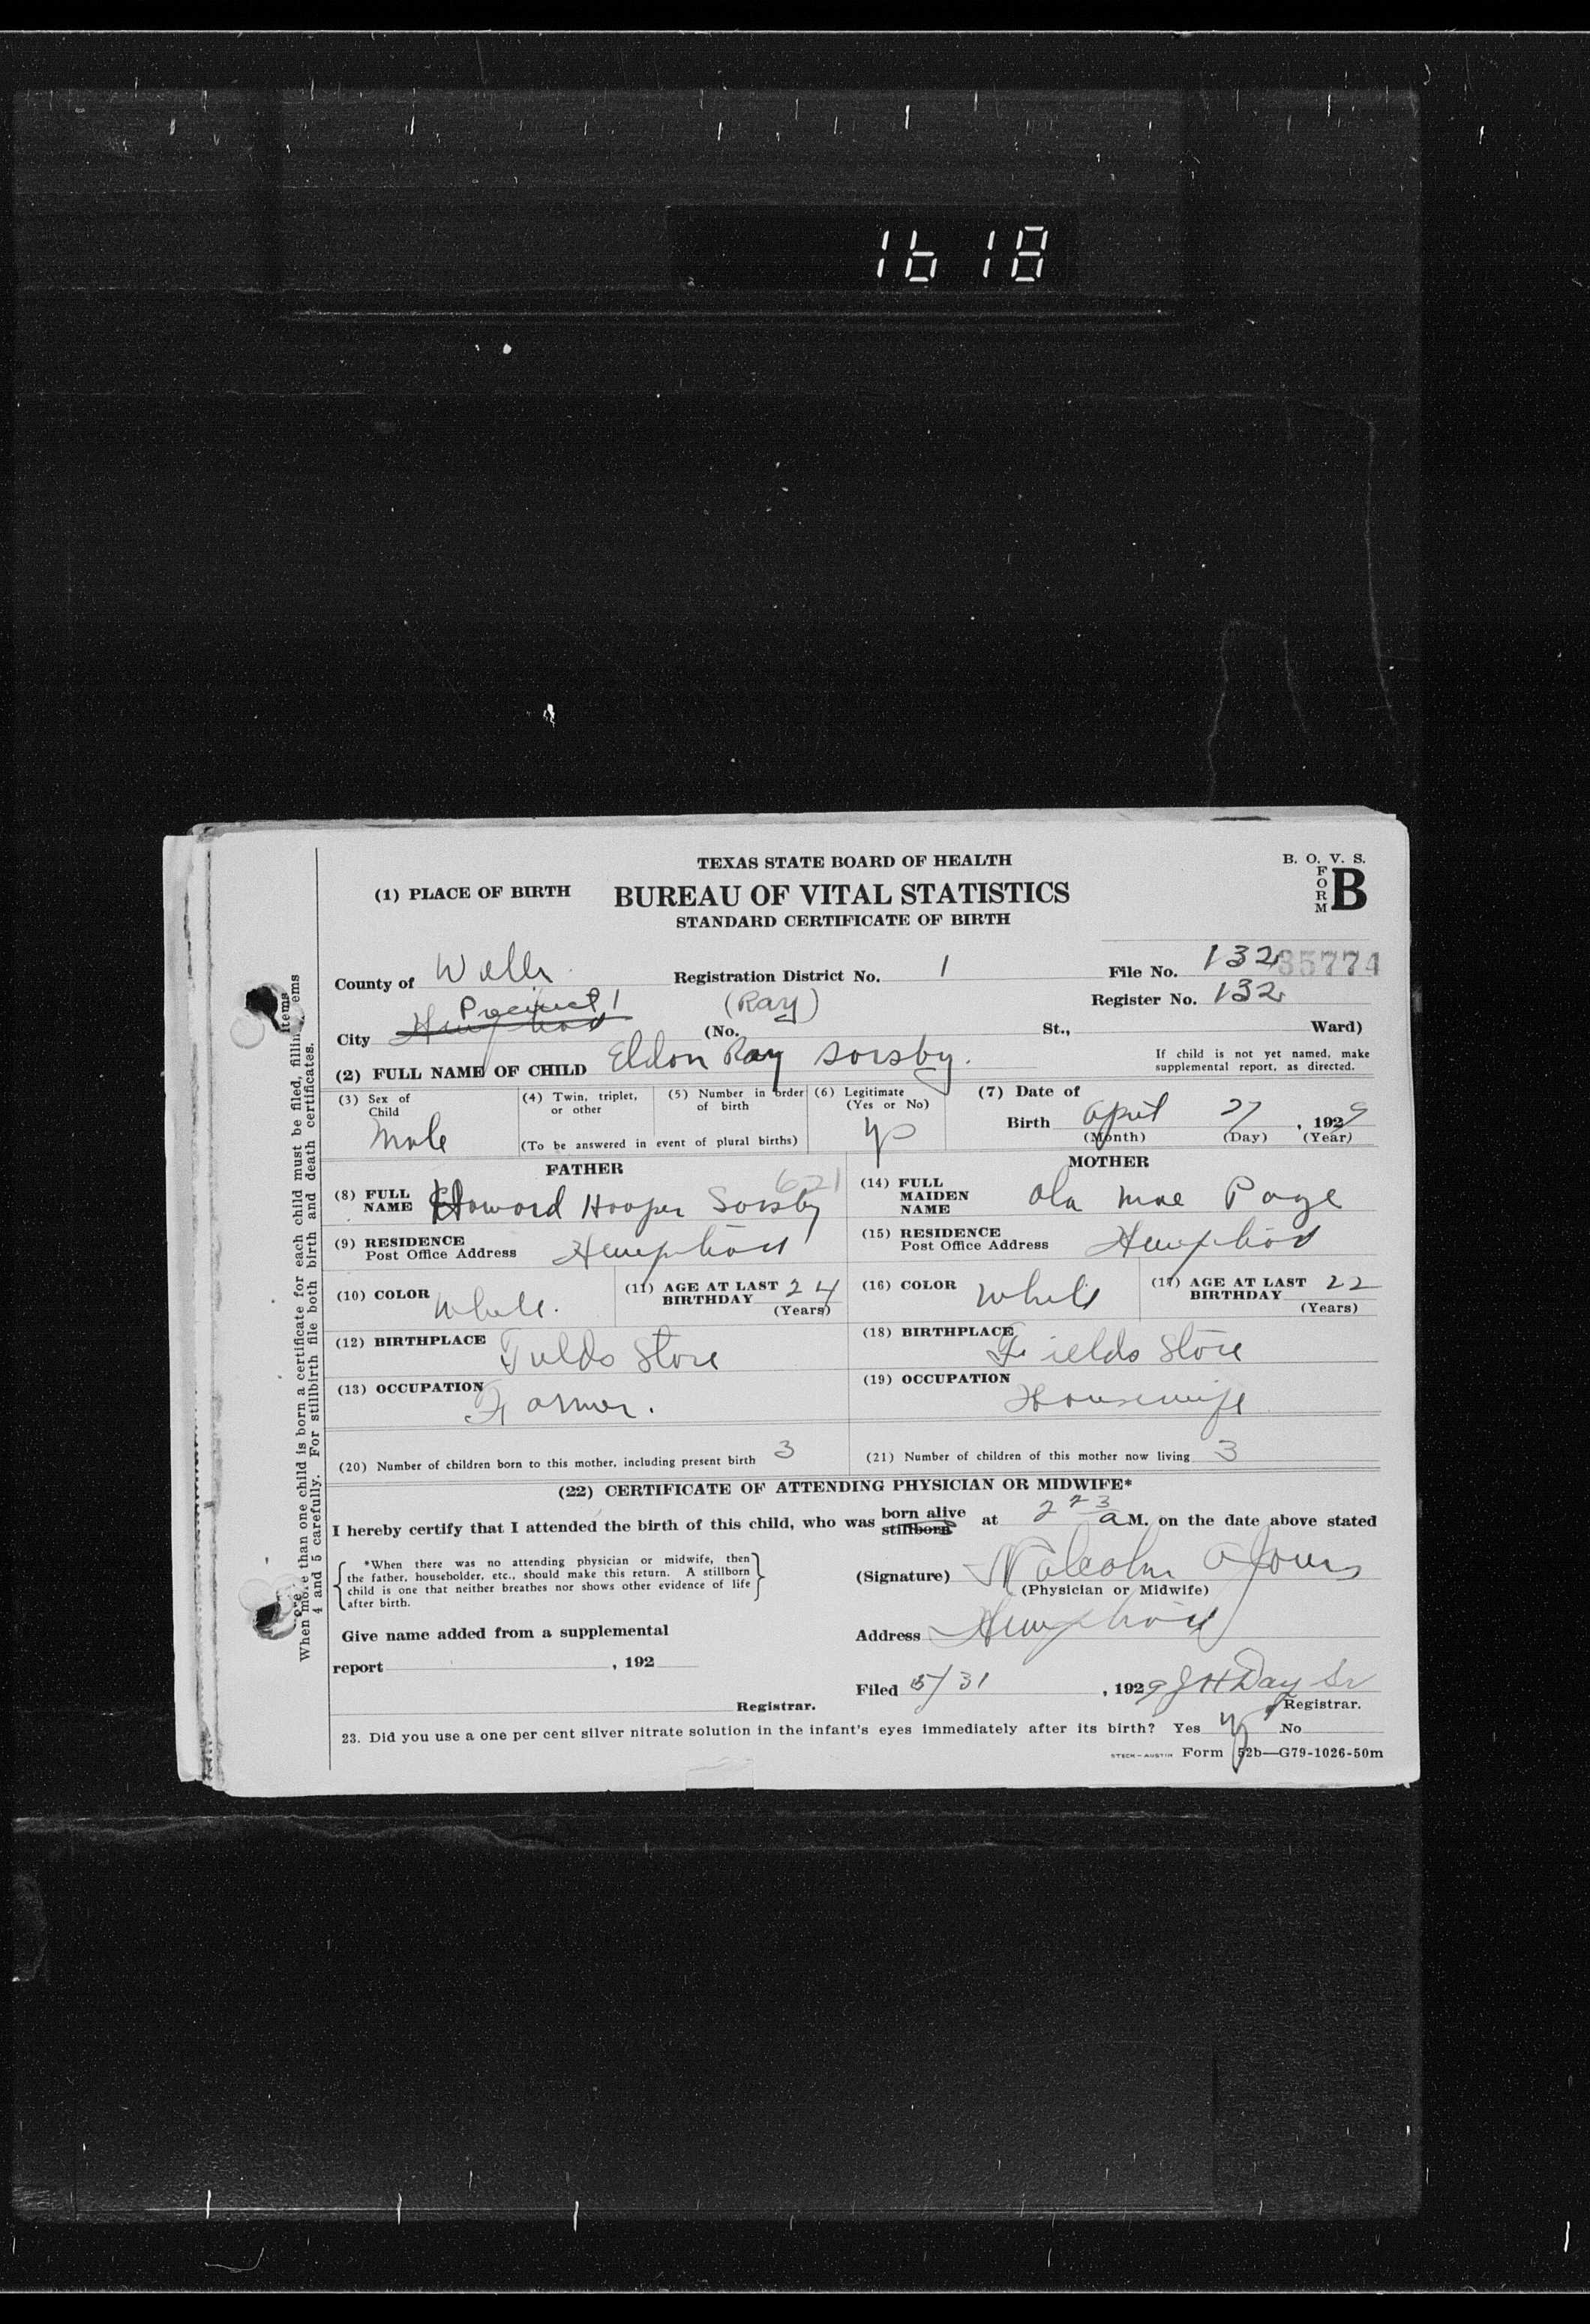 1618
TEXAS STATE BOARD OF HEALTH
B. O. V. S.
FORM B
(1) PLACE OF BIRTH
BUREAU OF VITAL STATISTICS
STANDARD CERTIFICATE OF BIRTH
County of Registration District No. 1 File No. 132 35774
Precinct 1 (Ray) Register No. 132
City (No. St., Ward)
(2) FULL NAME OF CHILD Eldon Ray Sorsby.
If child is not yet named, make supplemental report, as directed.
(3) Sex of Child Male
(4) Twin, triplet, or other
(5) Number in order of birth
(To be answered in event of plural births)
(6) Legitimate (Yes or No)
(7) Date of Birth April 27, 1929
(Month) (Day) (Year)
FATHER
(8) FULL NAME Howard Hooper Sorsby
621
(9) RESIDENCE Post Office Address
(10) COLOR White.
(11) AGE AT LAST BIRTHDAY 24 (Years)
(12) BIRTHPLACE Fields Store
(13) OCCUPATION Farmer.
MOTHER
(14) FULL MAIDEN NAME Ola Mae Page
(15) RESIDENCE Post Office Address
(16) COLOR White
(17) AGE AT LAST BIRTHDAY 22 (Years)
(18) BIRTHPLACE Fields Store
(19) OCCUPATION Housewife
(20) Number of children born to this mother, including present birth 3
(21) Number of children of this mother now living 3
(22) CERTIFICATE OF ATTENDING PHYSICIAN OR MIDWIFE*
I hereby certify that I attended the birth of this child, who was born alive stillborn at a M. on the date above stated
*When there was no attending physician or midwife, then the father, householder, etc., should make this return. A stillborn child is one that neither breathes nor shows other evidence of life after birth.
(Signature) Malcolm
(Physician or Midwife)
Give name added from a supplemental
Address
report , 192
Filed 5/31, 1929 J H Day Sr
Registrar. Registrar.
23. Did you use a one per cent silver nitrate solution in the infant's eyes immediately after its birth? Yes No
STECK-AUSTIN Form 52b—G79-1026-50m
When more than one child is born a certificate for each child must be filed, filling items
4 and 5 carefully. For stillbirth file both birth and death certificates.